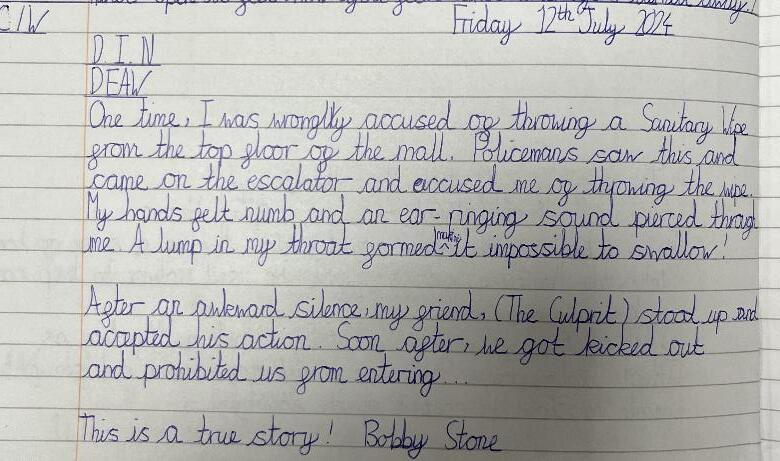 C/W
Friday 12th July 2024
D.I.N
DEAW
One time, I was wronglly accused of throwing a Sanitary Wipe
from the top floor of the mall. Policemans saw this and
came on the escalator and accused me of thyowing the wipe.
My hands felt numb and an ear-ringing sound pierced throug
me. A lump in my throat formed making it impossible to swallow!
After an awkward silence, my friend, (The Culprit) stood up and
accepted his action. Soon after, he got kicked out
and prohibited us from entering...
This is a true story! Bobby Stone